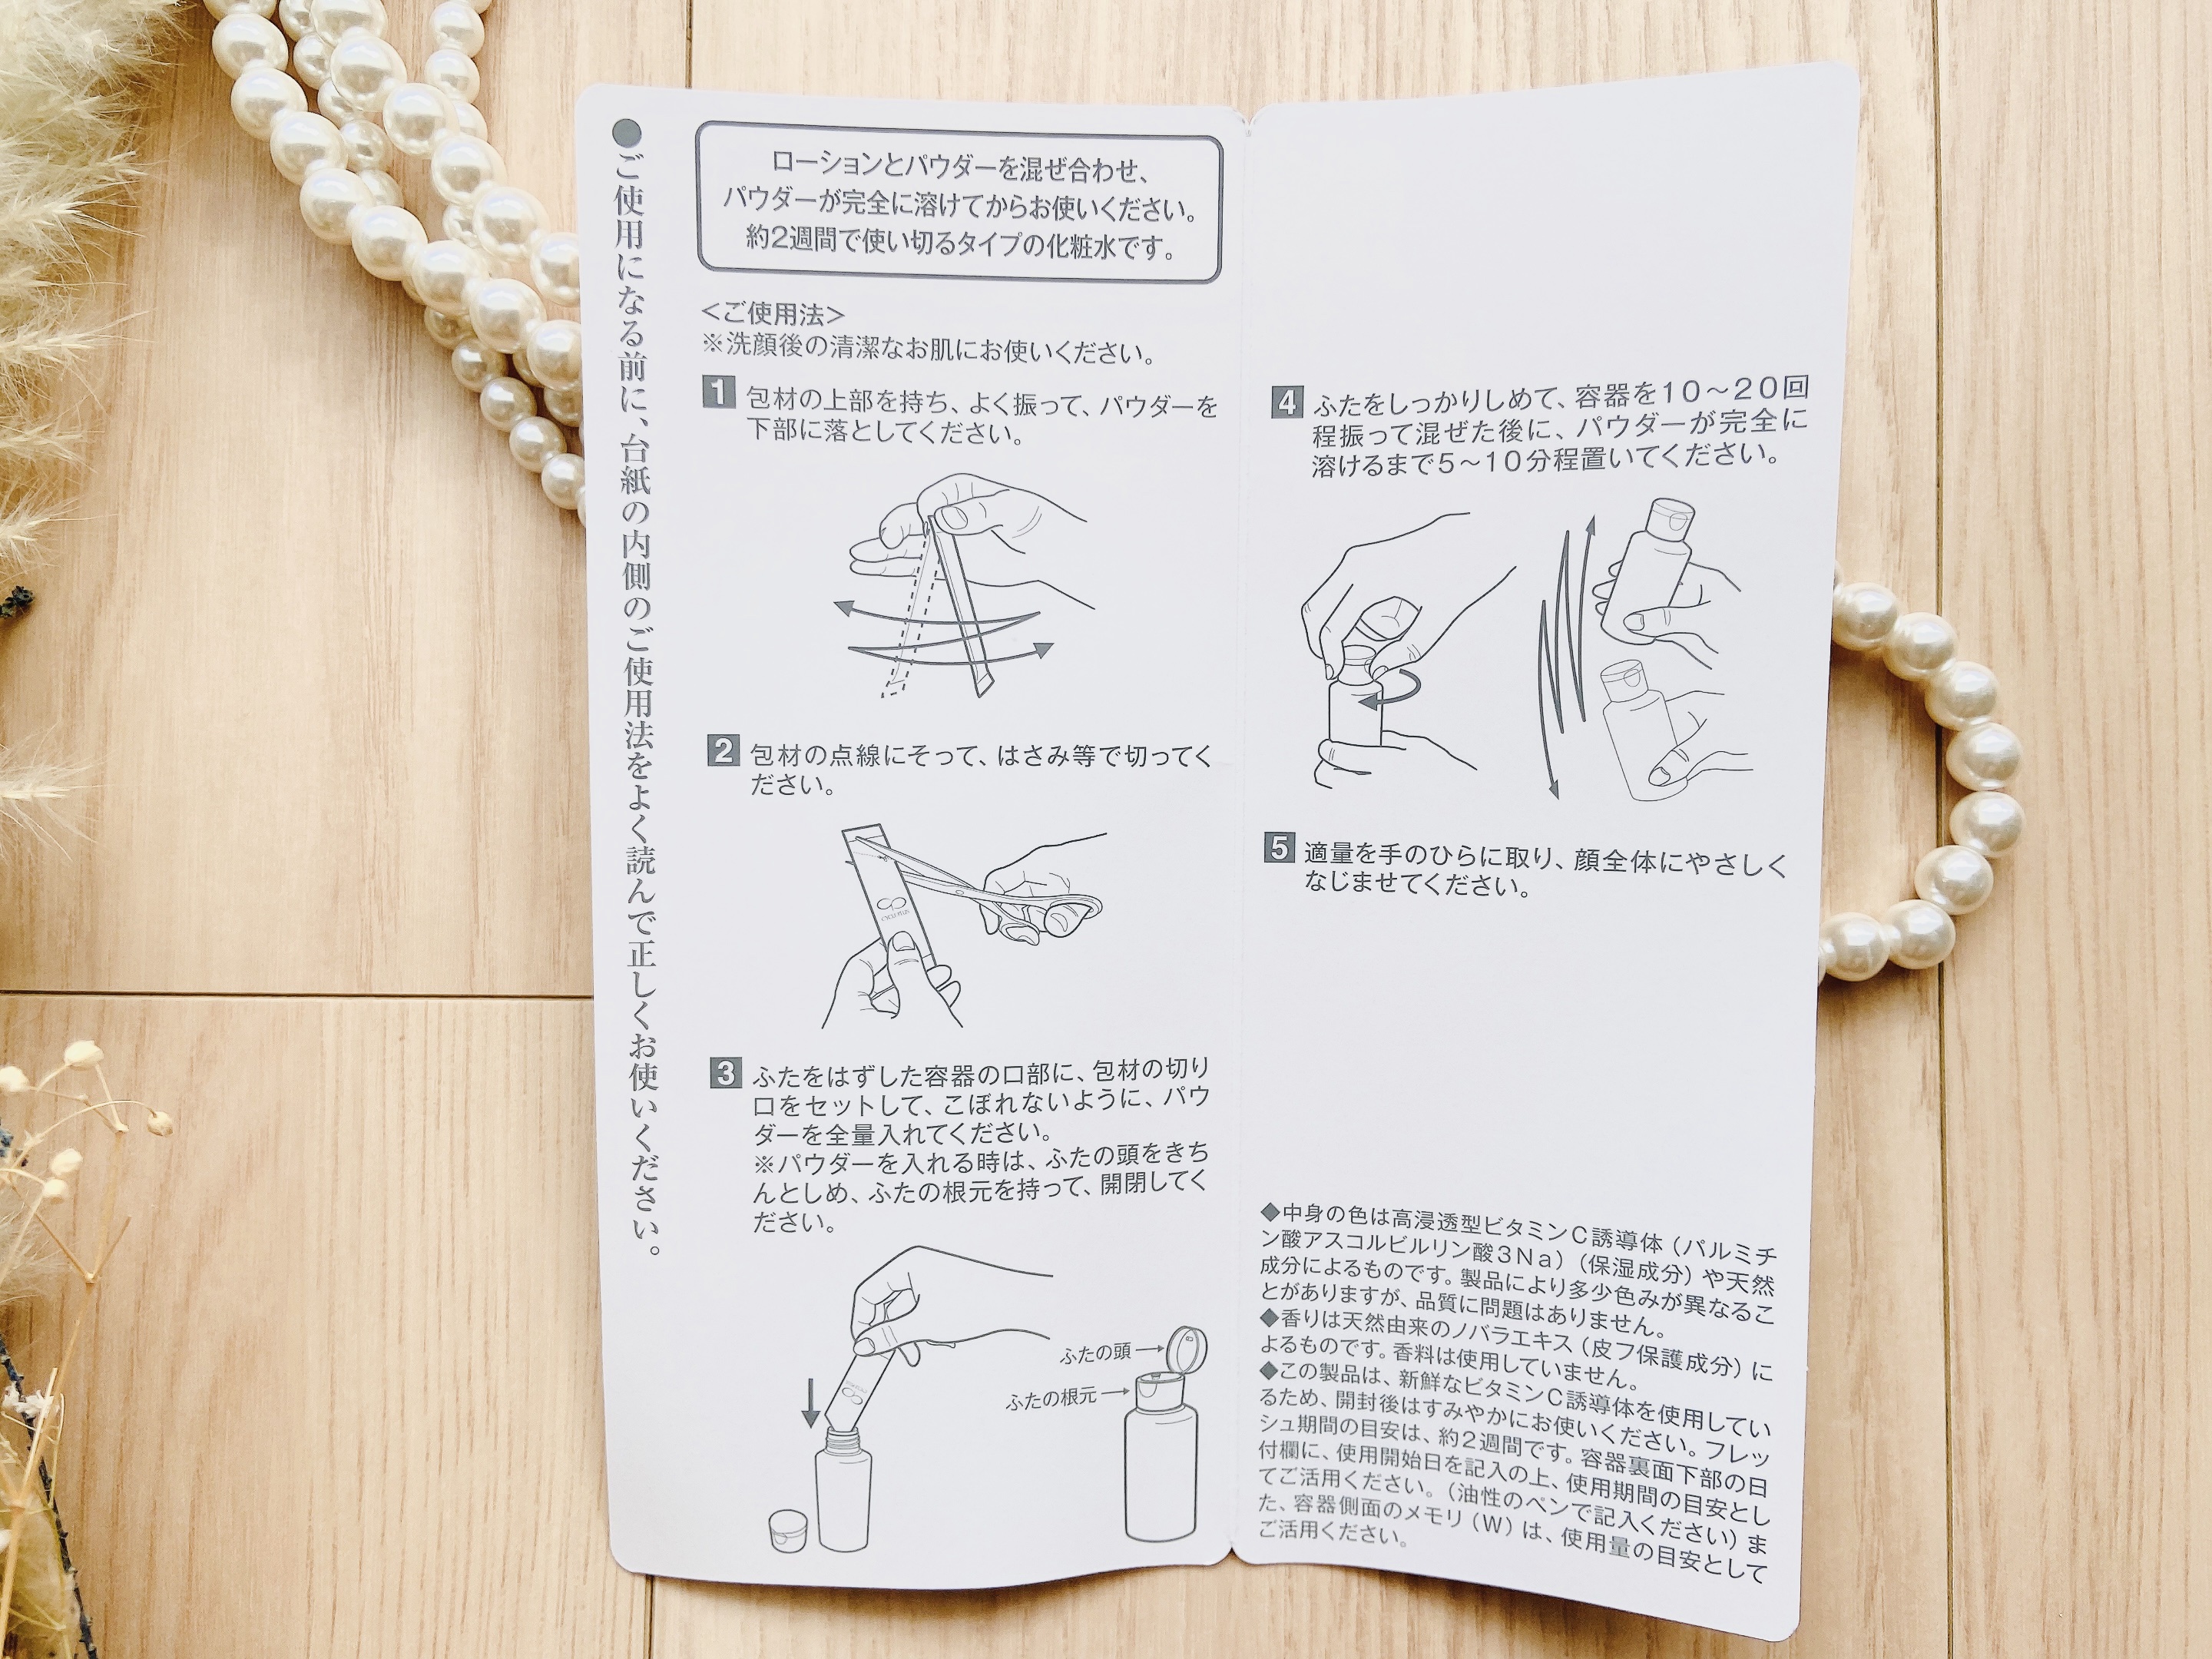 ●ご使用になる前に、台紙の内側のご使用法をよく読んで正しくお使いください。
ローションとパウダーを混ぜ合わせ、
パウダーが完全に溶けてからお使いください。
約2週間で使い切るタイプの化粧水です。
＜ご使用法＞
※洗顔後の清潔なお肌にお使いください。
1 包材の上部を持ち、よく振って、パウダーを
下部に落としてください。
2 包材の点線にそって、はさみ等で切ってく
ださい。
CYCLE PLUS
3 ふたをはずした容器の口部に、包材の切り
口をセットして、こぼれないように、パウ
ダーを全量入れてください。
※パウダーを入れる時は、ふたの頭をきち
んとしめ、ふたの根元を持って、開閉してく
ださい。
ふたの頭
ふたの根元
4 ふたをしっかりしめて、容器を10〜20回
程振って混ぜた後に、パウダーが完全に
溶けるまで5〜10分程置いてください。
5 適量を手のひらに取り、顔全体にやさしく
なじませてください。
◆中身の色は高浸透型ビタミンC誘導体（パルミチ
ン酸アスコルビルリン酸3Na）（保湿成分）や天然
成分によるものです。製品により多少色みが異なるこ
とがありますが、品質に問題はありません。
◆香りは天然由来のノバラエキス（皮フ保護成分）に
よるものです。香料は使用していません。
◆この製品は、新鮮なビタミンC誘導体を使用してい
るため、開封後はすみやかにお使いください。フレッ
シュ期間の目安は、約2週間です。容器裏面下部の日
付欄に、使用開始日を記入の上、使用期間の目安とし
てご活用ください。（油性のペンで記入ください）ま
た、容器側面のメモリ（W）は、使用量の目安として
ご活用ください。